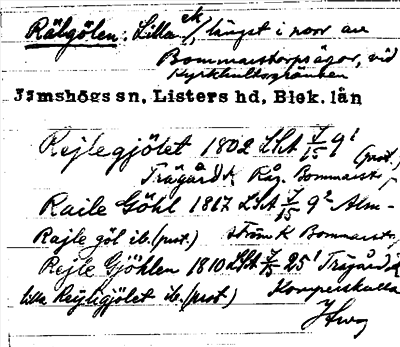 Rälgölen: Lilla ek/, längst i norr av
Bommarstorpsägor, vid
Kyrkhultsgränsen
Jämshögs sn, Listers hd, Blek. län
Rejlegjölet 1802 LSA 7/15 9¹ (prot.)
Trägård K Råg. Bommarst.
Raile Göhl 1817 LSA 7/15 9² Alm-
Rajle göl ib. (prot.) ström K Bommarst.
Rejle Gjöhlen 1810 LSA 7/15 25¹ Trägård K
lilla Reijligjölet ib. (prot.) Komperskulla